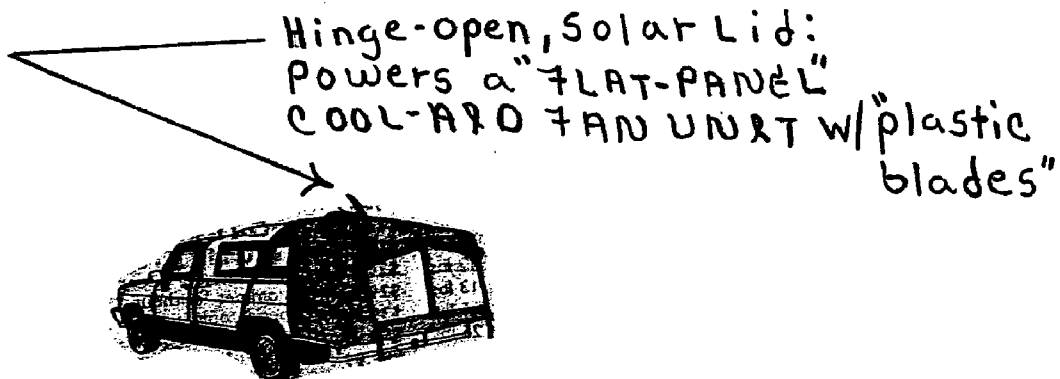 Hinge-open, Solar Lid:
Powers a "FLAT-PANEL"
COOL-AID FAN UNIT w/"plastic
blades"